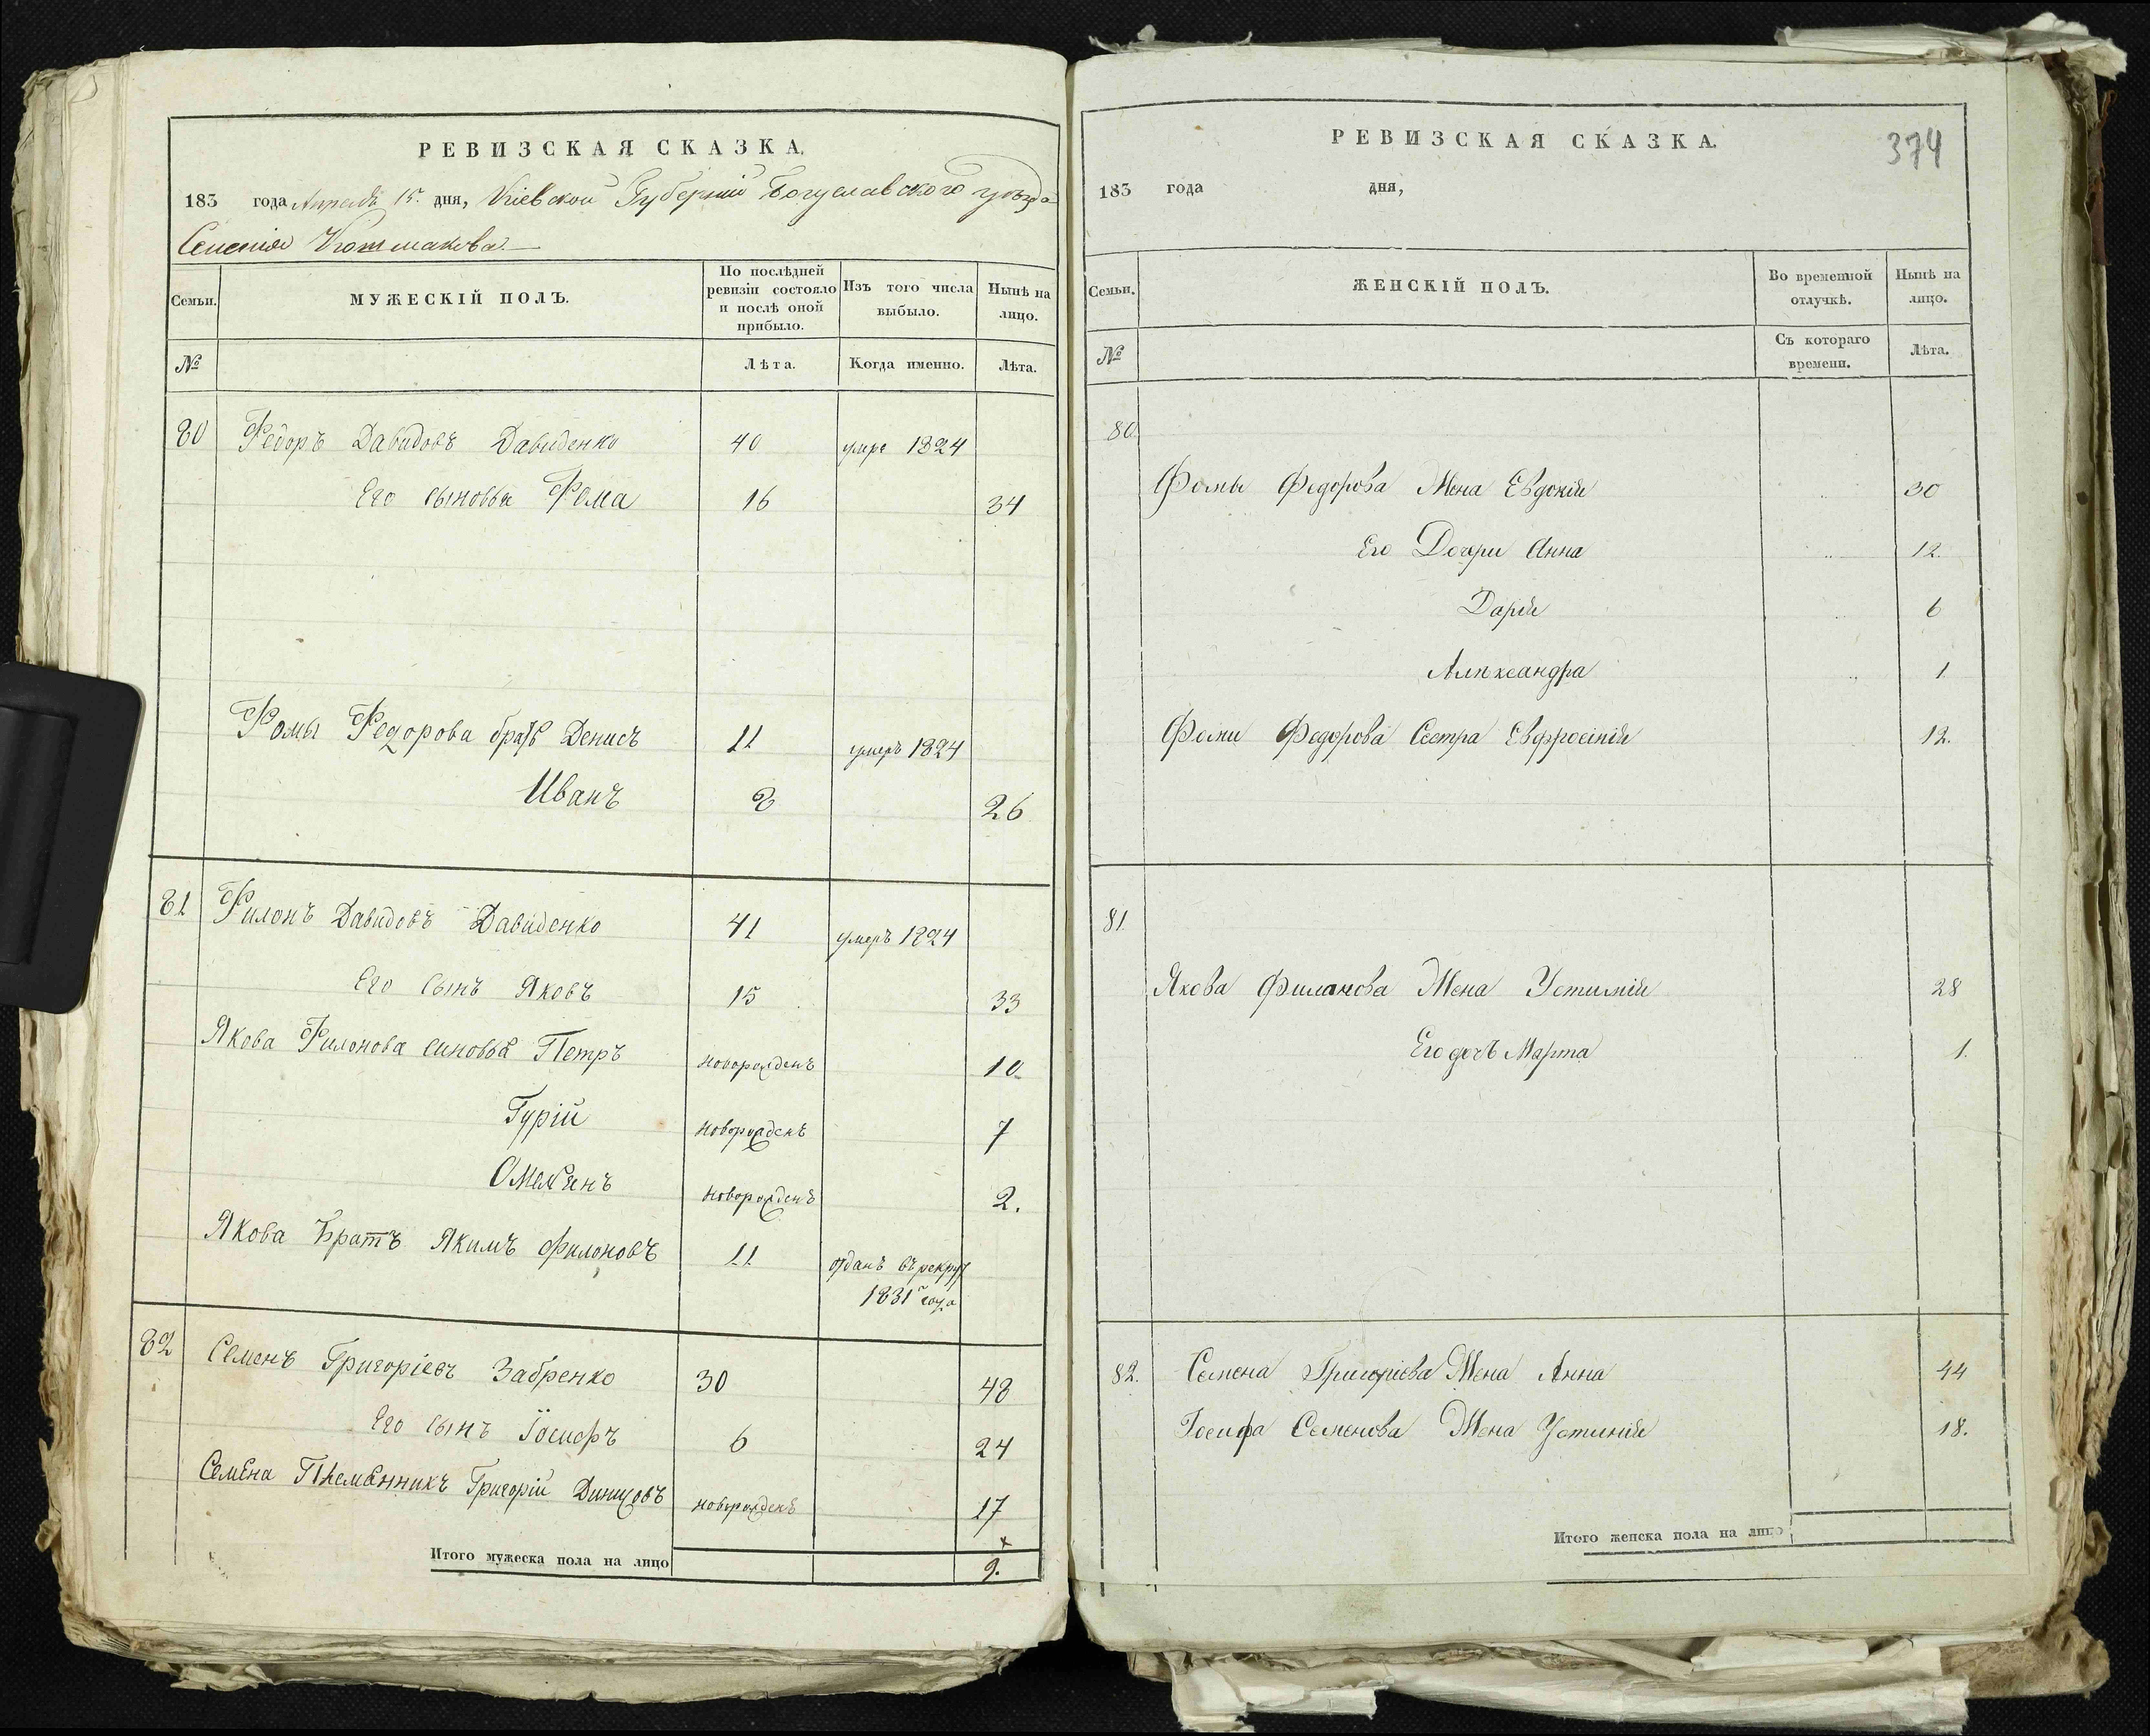 РЕВИЗСКАЯ СКАЗКА.
183 года Апреля 15. дня, Кіевской Губерніи Богуславского уезда
Селенія
Семьи. МУЖЕСКІЙ ПОЛЪ. По послѣдней ревизіи состояло и послѣ оной прибыло. Изъ того числа выбыло. Нынѣ на лицо.
№ Лѣта. Когда именно. Лѣта.
80 Федоръ Давидовъ Давиденко 40 умре 1824
Его сыновья Фома 16 34
Фомы Федорова братъ Денисъ 11 умеръ 1824
Иванъ 8 26
81 Филонъ Давидовъ Давиденко 41 умеръ 1824
Его сынъ Яковъ 15 33
Якова Филонова синовья Петръ новорожденъ 10
Гурій новорожденъ 7
Омельянъ новорожденъ 2.
Якова Братъ Якимъ Филоновъ 11 отданъ въ рекрут
1831 года
82 Семенъ Григоріевъ Забренко 30 48
Его сынъ Іосифъ 6 24
Семена Племянникъ Григорій новорожденъ 17
Итого мужеска пола на лицо 9.
РЕВИЗСКАЯ СКАЗКА. 374
183 года дня,
Семьи. ЖЕНСКІЙ ПОЛЪ. Во временной отлучкѣ. Нынѣ на лицо.
№ Съ котораго времени. Лѣта.
80.
Фомы Федорова Жена Евдокія 30
Его Дочери Анна 12.
Дарія 6
Александра 1
Фоми Федорова Сестра Евфросінія 12.
81.
Якова Филонова Жена Устинія 28
Его дочъ Марта 1.
82. Семена Григоріева Жена Анна 44
Іосифа Семенова Жена Устинія 18.
Итого женска пола на лицо